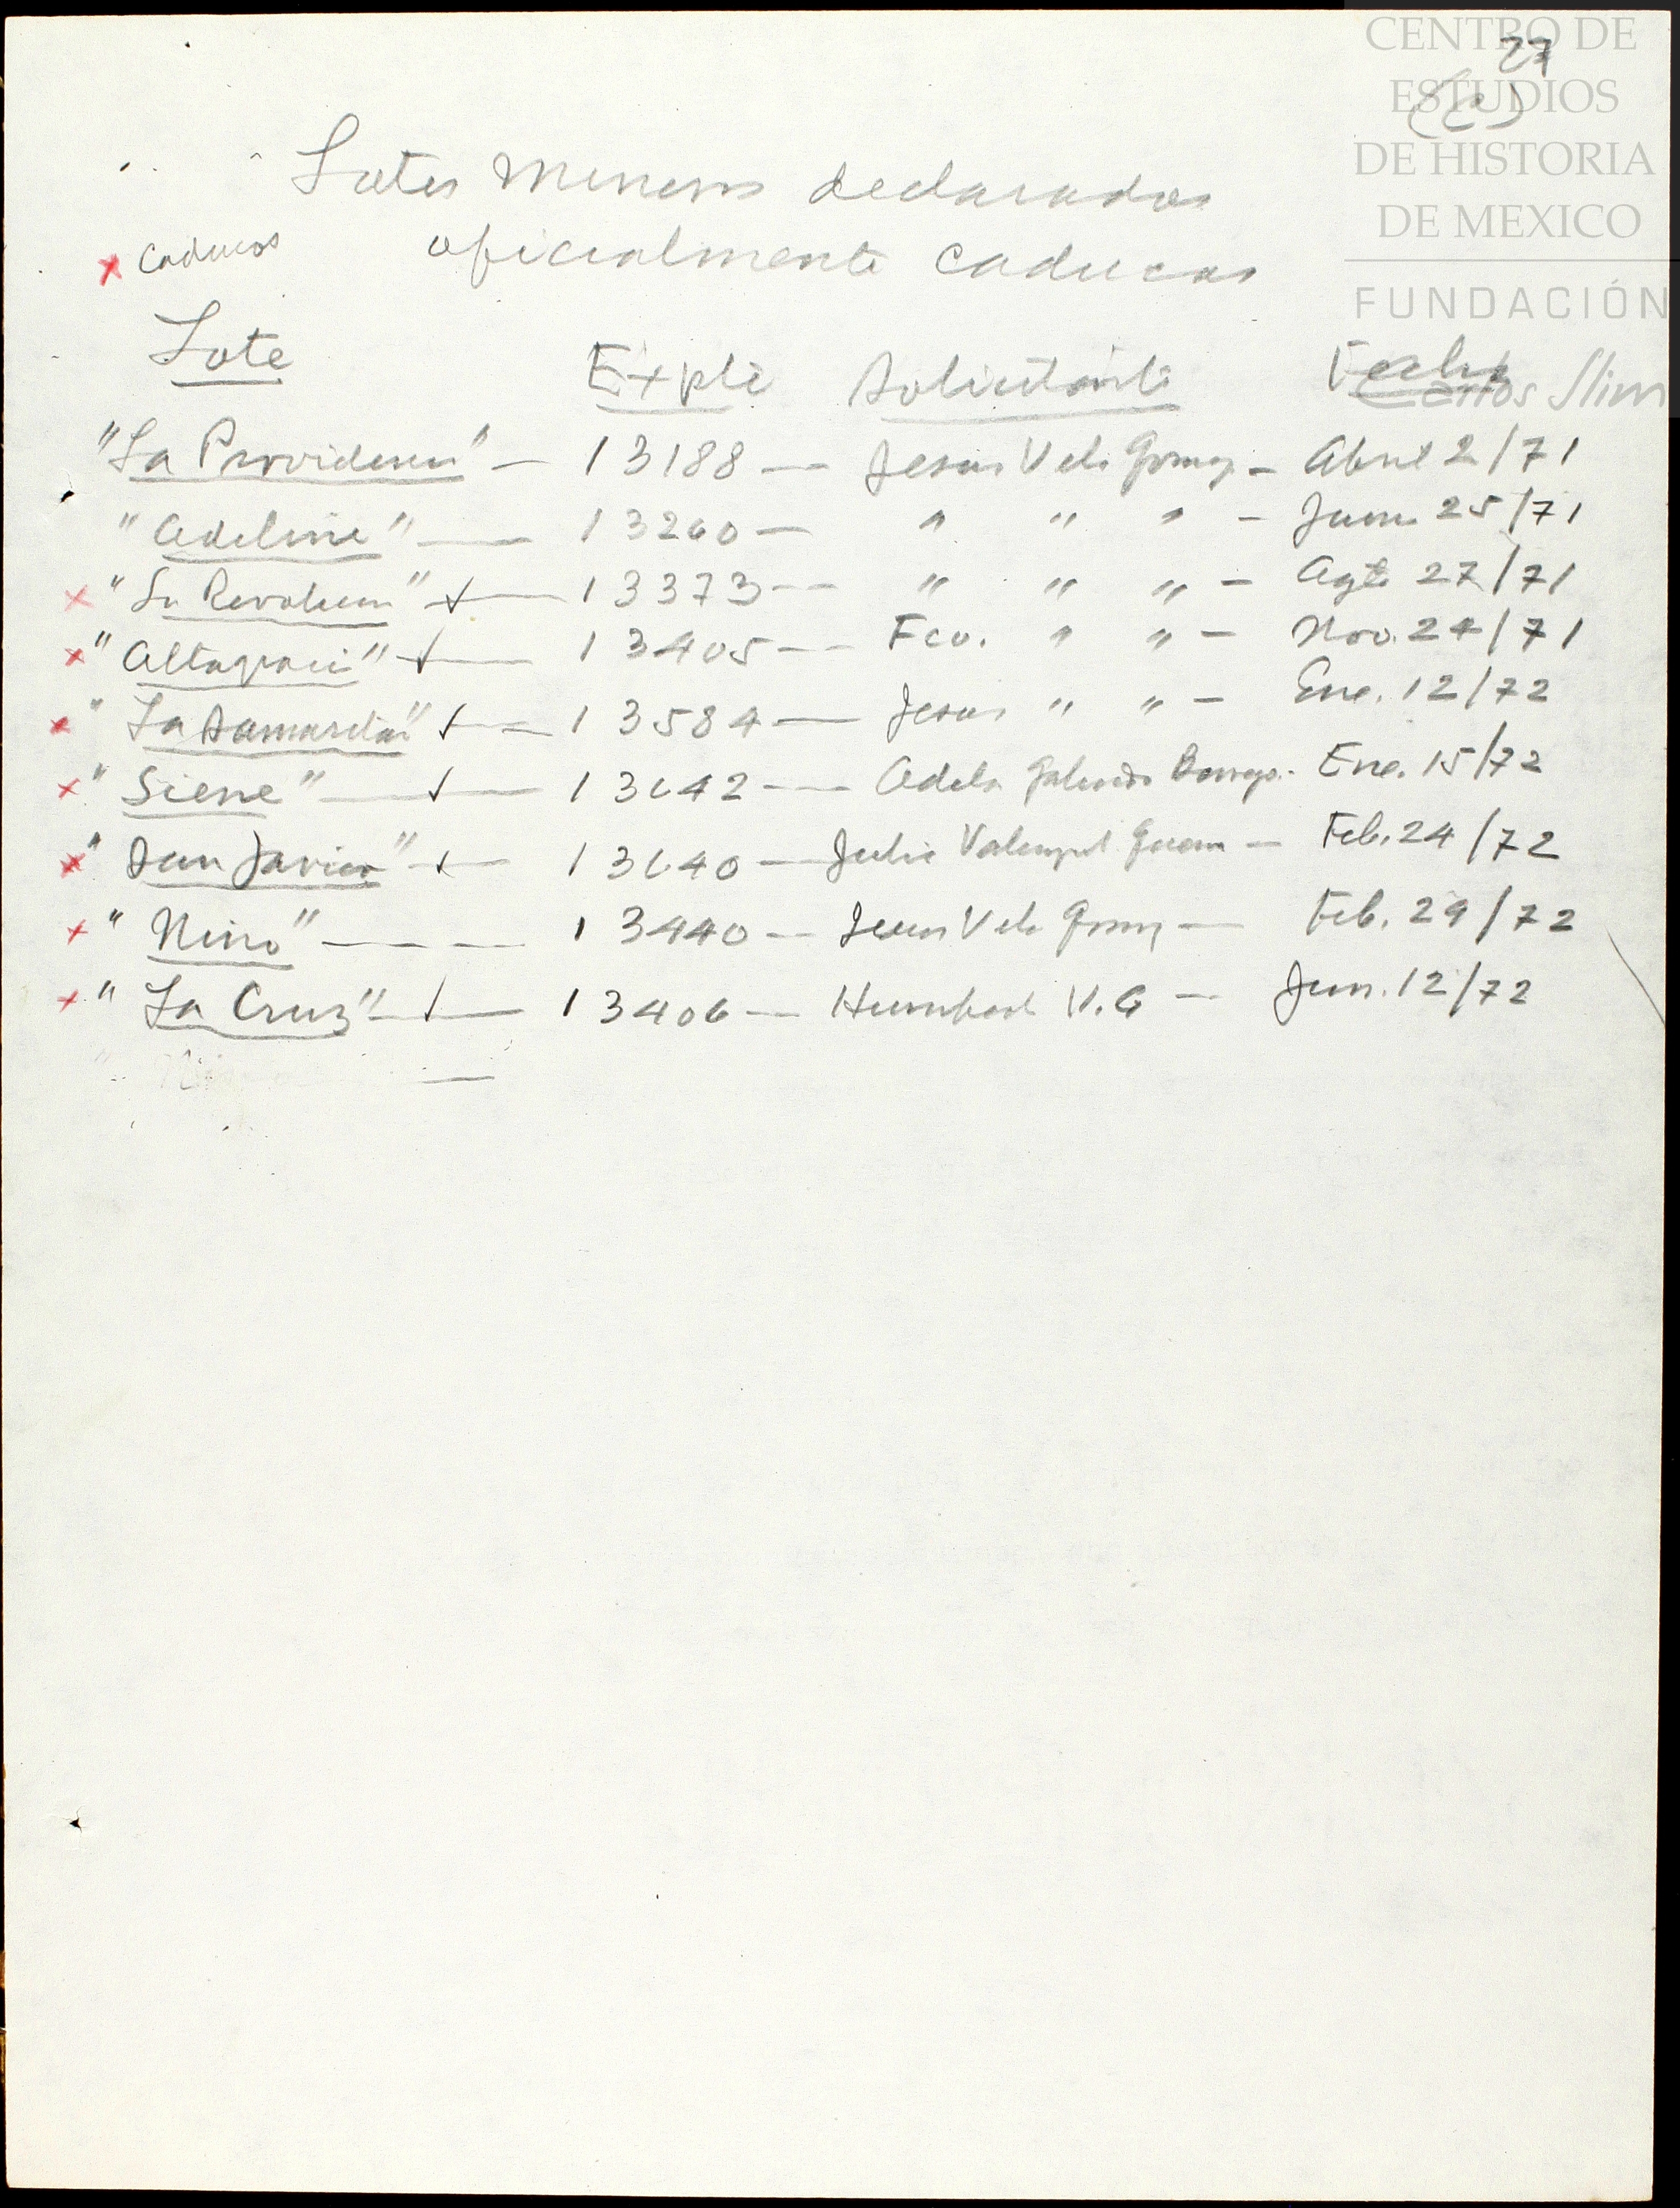 CENTRO DE
27
ESTUDIOS
DE HISTORIA
DE MEXICO
FUNDACIÓN
Carlos Slim
Lotes Mineros declarados
x Caducos oficialmente caducos
Lote Expte Solicitante Fecha
"La Providencia" — 13188 — Jesus Vela Gomez — Abril 2/71
"Adelina" — 13260 — " " " — Jun. 25/71
x "La Revolucion" — 13373 — " " " — Agto 27/71
x "Altagracia" — 13405 — Fco. " " — Nov. 24/71
x "La Samaritana" — 13584 — Jesus " " — Ene. 12/72
x "Siene" — 13642 — Adela Galindo — Ene. 15/72
x "San Javier" — 13640 — Julio — Feb. 24/72
x "Nino" — 13440 — Jesus Vela Gomez — Feb. 29/72
x "La Cruz" — 13406 — Humberto V. G — Jun. 12/72